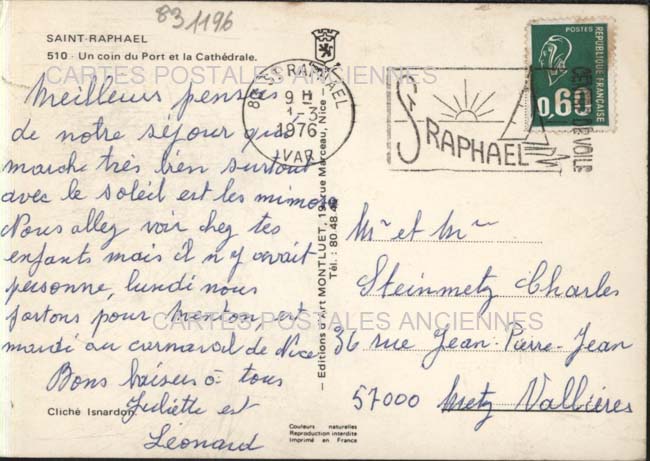 83 1196
SAINT-RAPHAEL
510 - Un coin du Port et la Cathédrale.
CARTES POSTALES ANCIENNES
Meilleurs pensées
de notre séjour qui
marche très bien surtout
avec le soleil est les mimosa
Nous allez voir chez tes
enfants mais il n y avait
personne, lundi nous
partons pour Menton, est
mardi au carnaval de Nice
Bons baisers à tous
Juliette est
Léonard
Cliché Isnardon
ST RAPHAEL
9 H
1-3
1976
VAR
- Editions d'Art MONTLUET, 19, rue Marceau, Nice
Tél.: 80.48.4
ST RAPHAEL
VOILE
POSTES
REPUBLIQUE FRANÇAISE
0,60
Mr et Mme
Steinmetz Charles
36 rue Jean-Pierre-Jean
57000 Metz Vallières
CARTES POSTALES ANCIENNES
Couleurs naturelles
Reproduction interdite
Imprimé en France